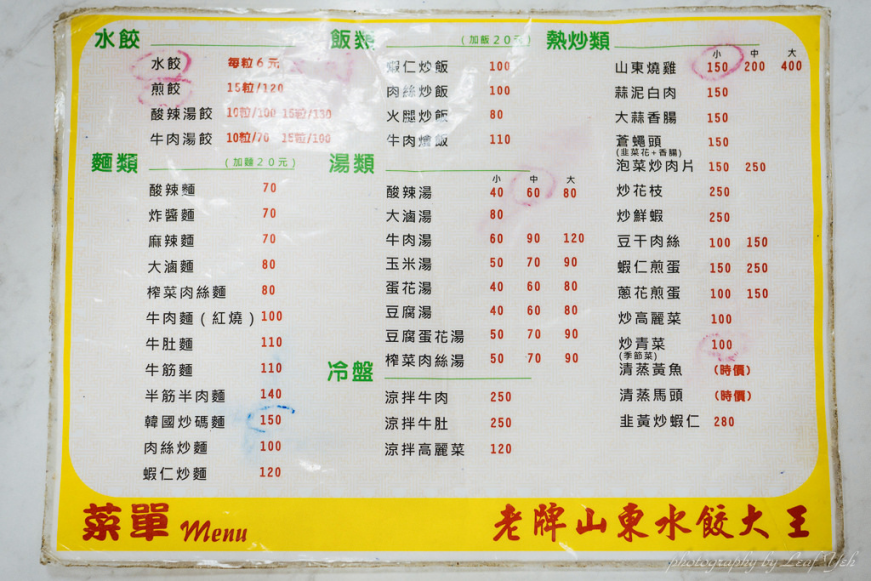 水餃
水餃 每粒6元
煎餃 15粒/120
酸辣湯餃 10粒/100 15粒/130
牛肉湯餃 10粒/70 15粒/100
麵類 (加麵20元)
酸辣麵 70
炸醬麵 70
麻辣麵 70
大滷麵 80
榨菜肉絲麵 80
牛肉麵(紅燒) 100
牛肚麵 110
牛筋麵 110
半筋半肉麵 140
韓國炒碼麵 150
肉絲炒麵 100
蝦仁炒麵 120
飯類 (加飯20元)
蝦仁炒飯 100
肉絲炒飯 100
火腿炒飯 80
牛肉燴飯 110
湯類
小 中 大
酸辣湯 40 60 80
大滷湯 80
牛肉湯 60 90 120
玉米湯 50 70 90
蛋花湯 40 60 80
豆腐湯 40 60 80
豆腐蛋花湯 50 70 90
榨菜肉絲湯 50 70 90
冷盤
涼拌牛肉 250
涼拌牛肚 250
涼拌高麗菜 120
熱炒類
小 中 大
山東燒雞 150 200 400
蒜泥白肉 150
大蒜香腸 150
蒼蠅頭 150
(韭菜花+香腸)
泡菜炒肉片 150 250
炒花枝 250
炒鮮蝦 250
豆干肉絲 100 150
蝦仁煎蛋 150 250
蔥花煎蛋 100 150
炒高麗菜 100
炒青菜 100
(季節菜)
清蒸黃魚 (時價)
清蒸馬頭 (時價)
韭黃炒蝦仁 280
菜單 Menu
老牌山東水餃大王
photography by Leaf Yeh